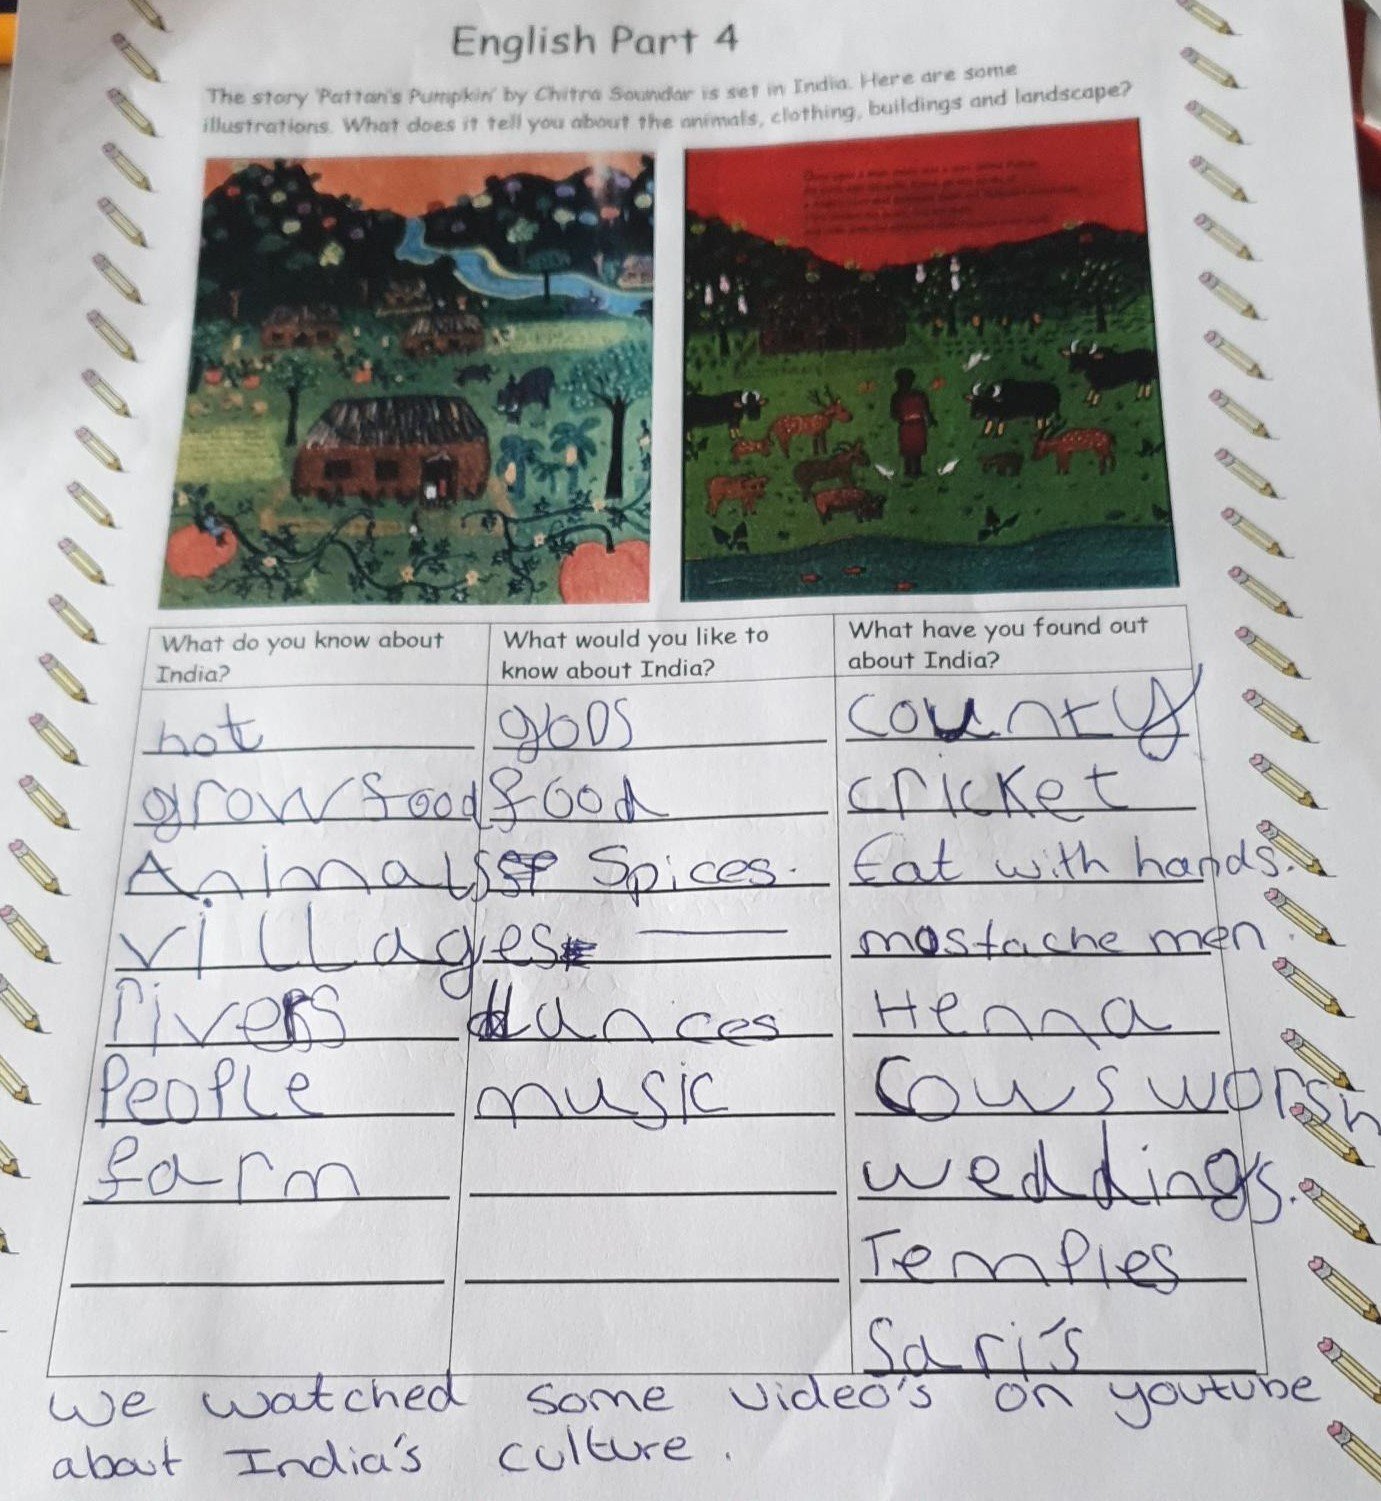 English Part 4
The story 'Pattan's Pumpkin' by Chitra Soundar is set in India. Here are some
illustrations. What does it tell you about the animals, clothing, buildings and landscape?
What do you know about
India?
hot
grow food
Animals
villages
rivers
People
farm
What would you like to
know about India?
goDS
food
Spices.
dances
music
What have you found out
about India?
country
cricket
Eat with hands.
mostache men.
Henna
Cows worsh
weddings.
Temples
Sari's
We watched some video's on youtube
about India's culture.